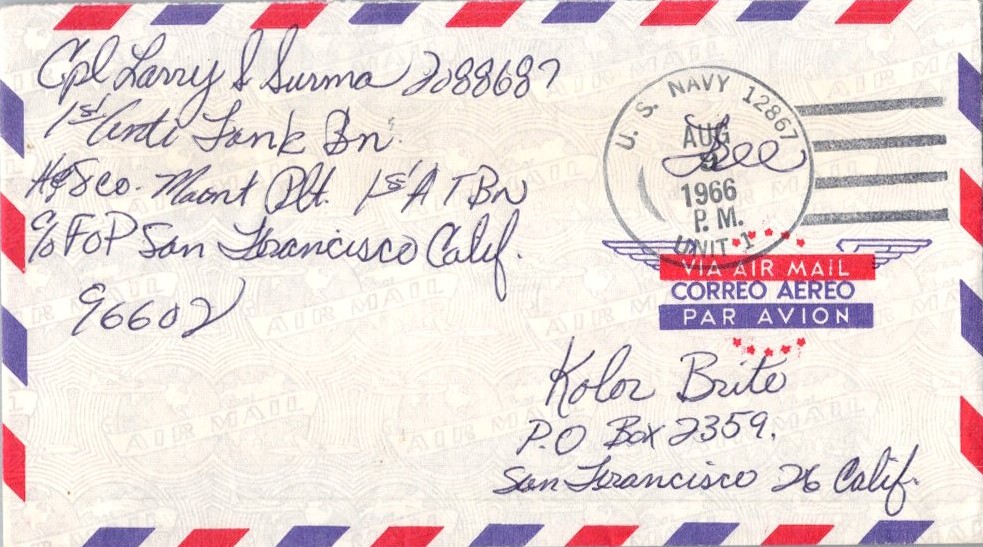 Cpl Larry S Surma 2088687
1st Anti Tank Bn.
H&S Co. Maint Plt. 1st A T Bn
c/o FOP San Francisco Calif.
96602
U. S. NAVY 12867
AUG
1966
P. M.
UNIT 1
Free
VIA AIR MAIL
CORREO AEREO
PAR AVION
Kolor Brite
P.O Box 2359.
San Francisco 26 Calif.